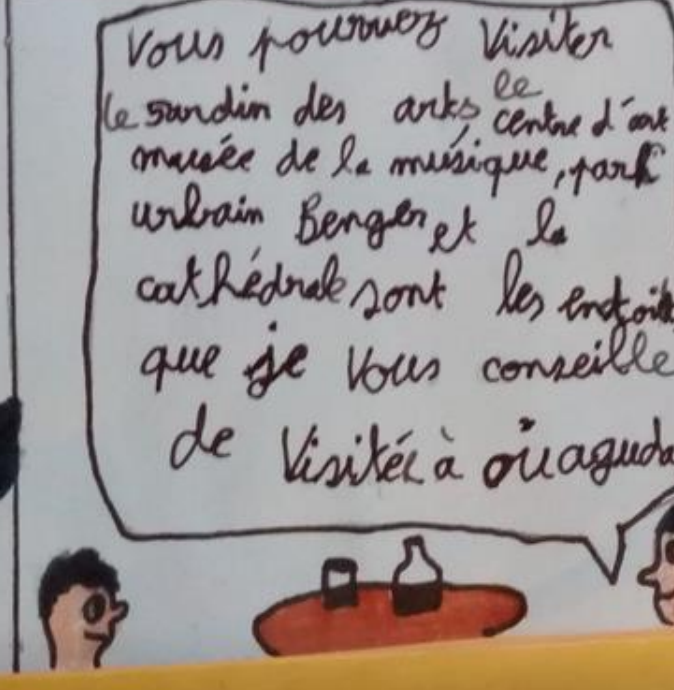 Vous pourvez Visiter
le Jardin des arts, le centre d'art
musée de la músique, park
urbain Benger et la
cathédrale sont les endroits
que je Vous conseille
de Visitéé à oúaguda